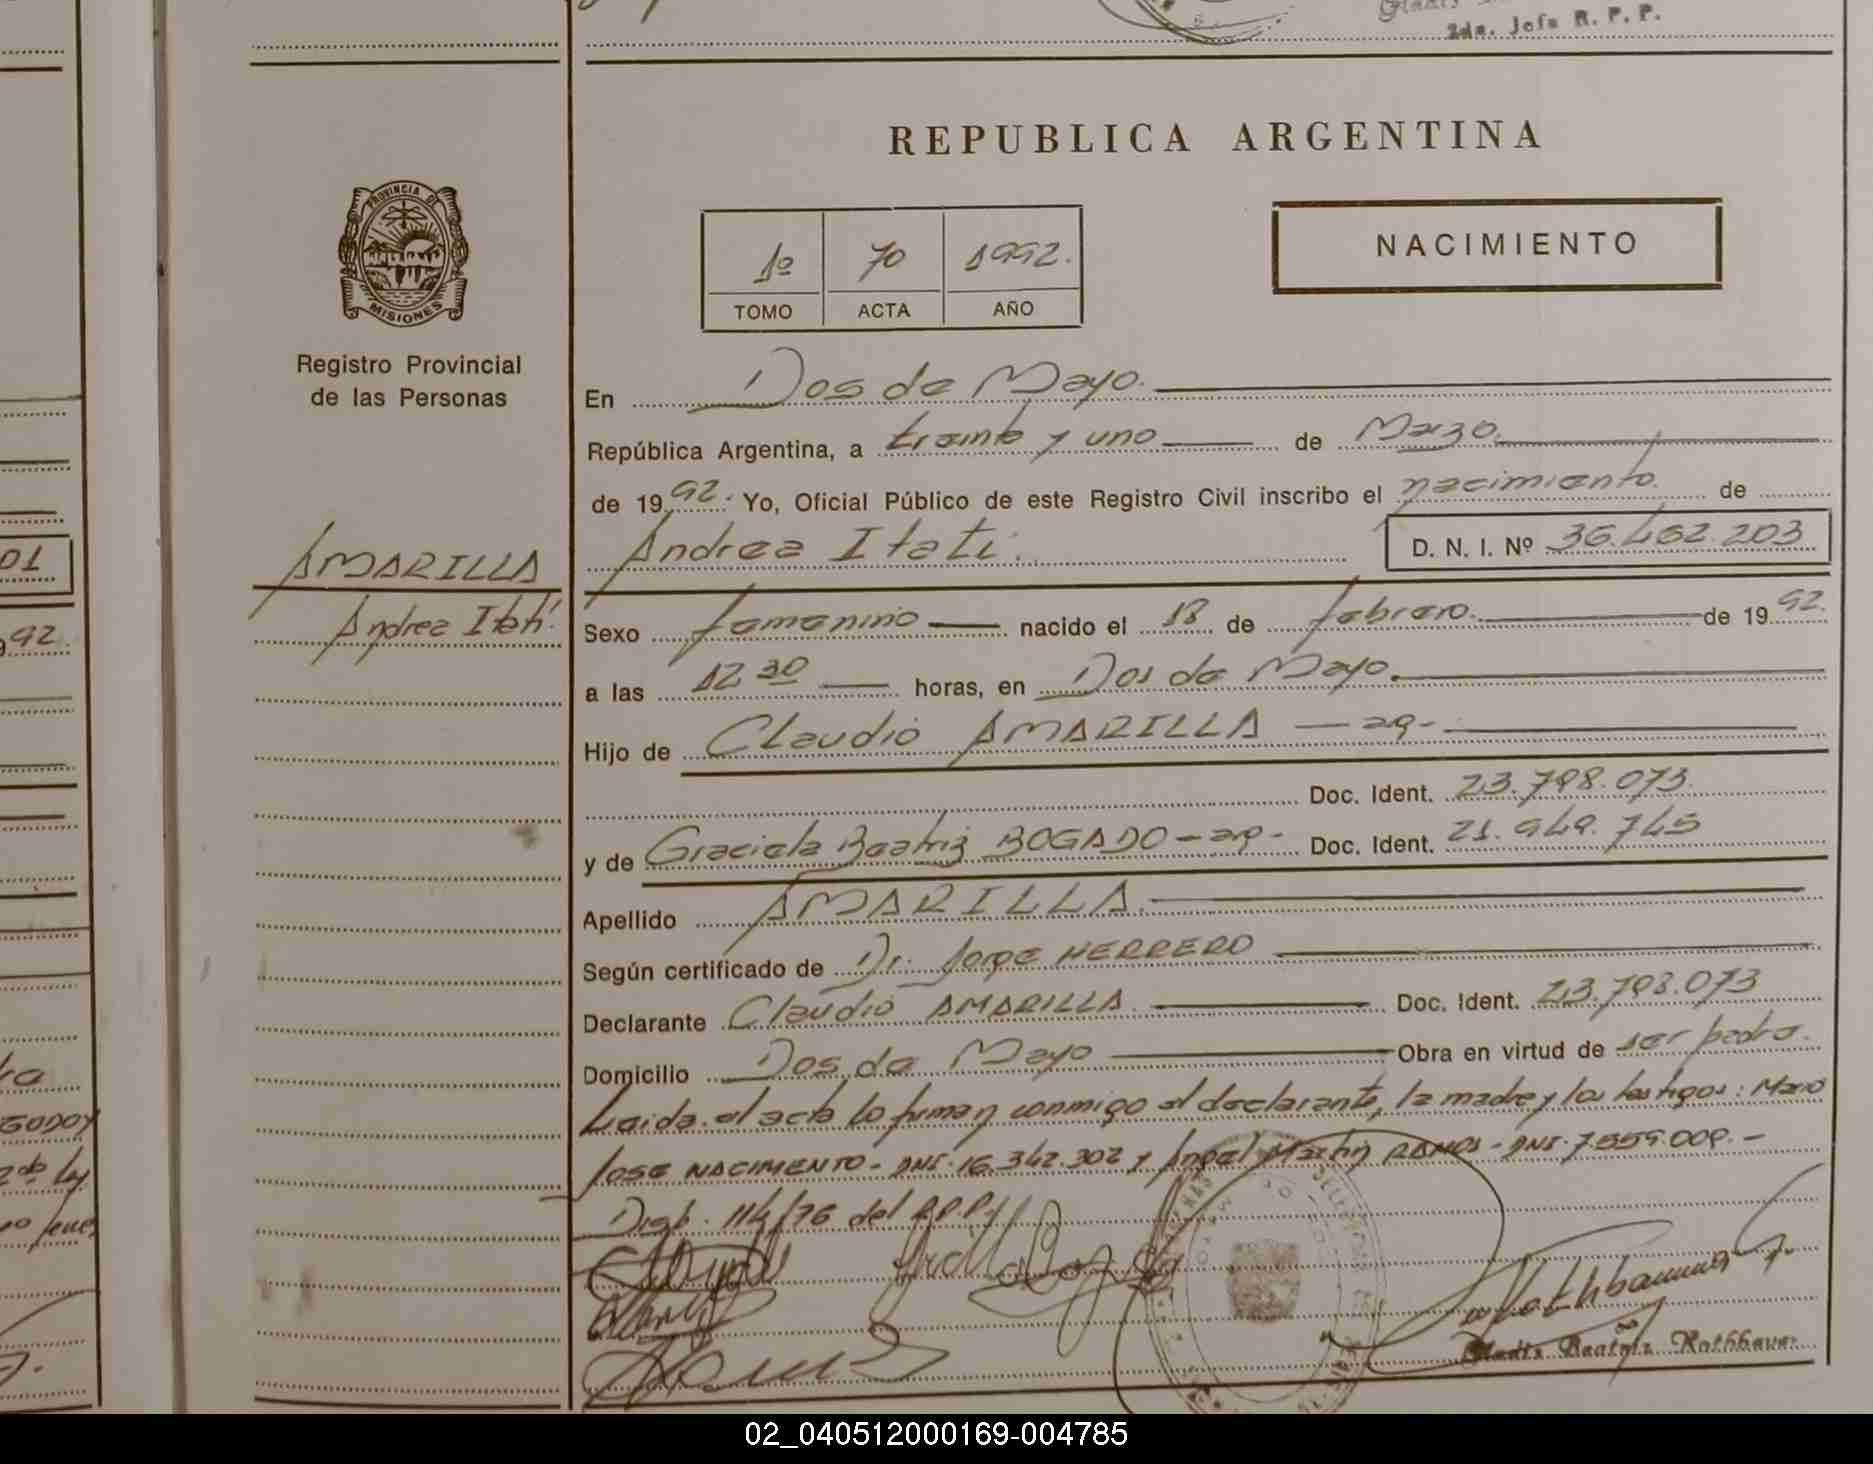 2da. Jefa R. P. P.
REPUBLICA ARGENTINA
PROVINCIA DE
MISIONES
Registro Provincial
de las Personas
1º 70 1992.
TOMO ACTA AÑO
NACIMIENTO
En Dos de Mayo.
República Argentina, a treinta y uno de Marzo.
de 1992. Yo, Oficial Público de este Registro Civil inscribo el nacimiento de
Andrea Itati. D. N. I. Nº 36.462.203
AMARILLA
Andrea Itati
Sexo femenino nacido el 18 de febrero. de 1992.
a las 12 30 horas, en Dos de Mayo.
Hijo de Claudio AMARILLA - ar -
Doc. Ident. 23.798.073.
y de Graciela Beatriz BOGADO - ar - Doc. Ident. 21.949.745
Apellido AMARILLA.
Según certificado de Dr. Jorge HERRERO
Declarante Claudio AMARILLA. Doc. Ident. 23.798.073
Domicilio Dos de Mayo Obra en virtud de ser padre.
Leida el acta lo firman conmigo el declarante, la madre y los testigos: Mario
José NACIMIENTO - DNI. 16.342.302 y Angel Martin RAMOS - DNI. 7.559.009. -
Disp. 114/76 del R.P.P.
Gladis Beatriz Rothbauer
01
92
GODOY
2do
02_040512000169-004785